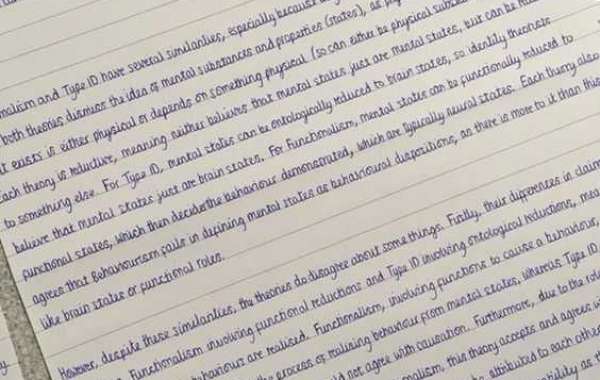 nalism and Type ID have several similarities, especially because
both theories dismiss the idea of mental substances and properties (states), as
t exists is either physical or depends on something physical (so can either be physical
Each theory is reductive, meaning neither believes that mental states just are mental states, but can be
to something else. For Type ID, mental states can be ontologically reduced to brain states, so identity theorists
believe that mental states just are brain states. For Functionalism, mental states can be functionally reduced to
functional states, which then decide the behaviour demonstrated, which are typically neural states. Each theory also
agrees that Behaviourism fails in defining mental states as behavioural dispositions, as there is more to it than this
like brain states or functional roles.
However, despite these similarities, the theories do disagree about some things. Firstly, their differences in
Functionalism involving functional reductions and Type ID involving ontological reductions,
behaviours are realised. Functionalism, involving functions to cause a behaviour,
the process of realising behaviour from mental states, whereas Type ID
not agree with causation. Furthermore, due to the
this theory accepts and agrees
attributed to each other
as